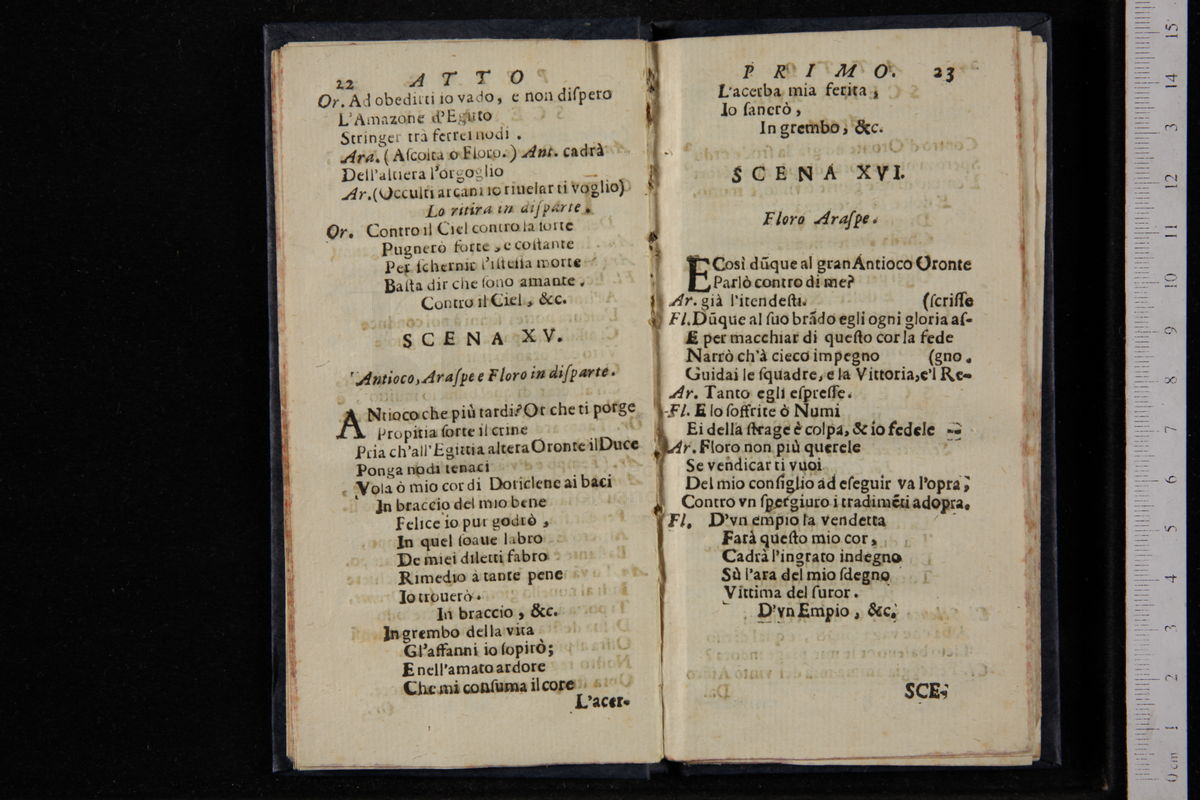 22 ATTO
Or. Ad obedirti io vado, e non dispero
L'Amazone d'Egitto
Stringer trà ferrei nodi.
Ara. (Ascolta ò Floro.) Ant. cadrà
Dell'altiera l'orgoglio
Ar. (Occulti arcani io riuelar ti voglio)
Lo ritira in disparte.
Or. Contro il Ciel contro la sorte
Pugnerò forte, e costante
Per schernir l'istessa morte
Basta dir che sono amante.
Contro il Ciel, &c.
SCENA XV.
Antioco, Araspe e Floro in disparte.
ANtioco che più tardi? Or che ti porge
Propitia sorte il crine
Pria ch'all'Egittia altera Oronte il Duce
Ponga nodi tenaci
Vola ò mio cor di Doriclene ai baci
In braccio del mio bene
Felice io pur godrò,
In quel soaue labro
De miei diletti fabro
Rimedio à tante pene
Io trouerò.
In braccio, &c.
In grembo della vita
Gl'affanni io sopirò;
E nell'amato ardore
Che mi consuma il core
L'acer-
PRIMO. 23
L'acerba mia ferita,
Io sanerò,
In grembo, &c.
SCENA XVI.
Floro Araspe.
ECosì dũque al gran Antioco Oronte
Parlò contro di me?
Ar. già l'itendesti. (scrisse
Fl. Dũque al suo brãdo egli ogni gloria as-
E per macchiar di questo cor la fede
Narrò ch'à cieco impegno (gno.
Guidai le squadre, e la Vittoria, e'l Re-
Ar. Tanto egli espresse.
Fl. E lo soffrite ò Numi
Ei della strage è colpa, & io fedele --
Ar. Floro non più querele
Se vendicar ti vuoi
Del mio consiglio ad eseguir va l'opra;
Contro vn spergiuro i tradimẽti adopra.
Fl. D'vn empio la vendetta
Farà questo mio cor,
Cadrà l'ingrato indegno
Sù l'ara del mio sdegno
Vittima del furor.
D'vn Empio, &c.
SCE-